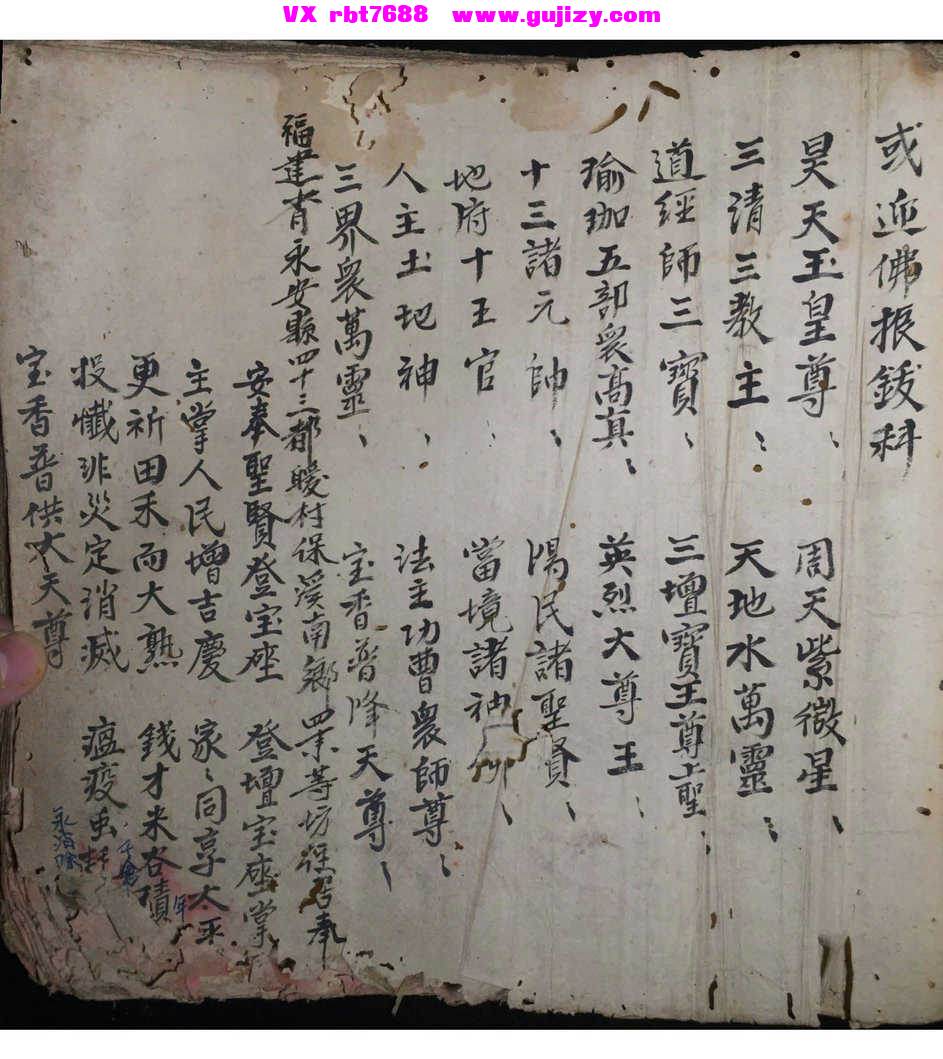 VX rbt7688 www.gujizy.com
或迎佛振鈸科
昊天玉皇尊、 周天紫微星、
三清三教主、、 天地水萬靈、、
道經師三寶、、 三壇寶王尊上聖、、
瑜珈五部衆高真、、 英烈大尊王、、
十三諸元帥、、 陽民諸聖賢、、
地府十王官、、 當境諸神、、
人主土地神、、 法主功曹衆師尊、、
三界衆萬靈、、 宝香普降天尊、、
福建省永安縣四十三都暖村保溪南鄉 等坊 居奉
安奉聖賢登宝座 登壇宝座掌
主掌人民增吉慶 家、同享太平年
更祈田禾而大熟 錢才米谷積
投懺非災定消滅 瘟疫虫
宝香普供大天尊